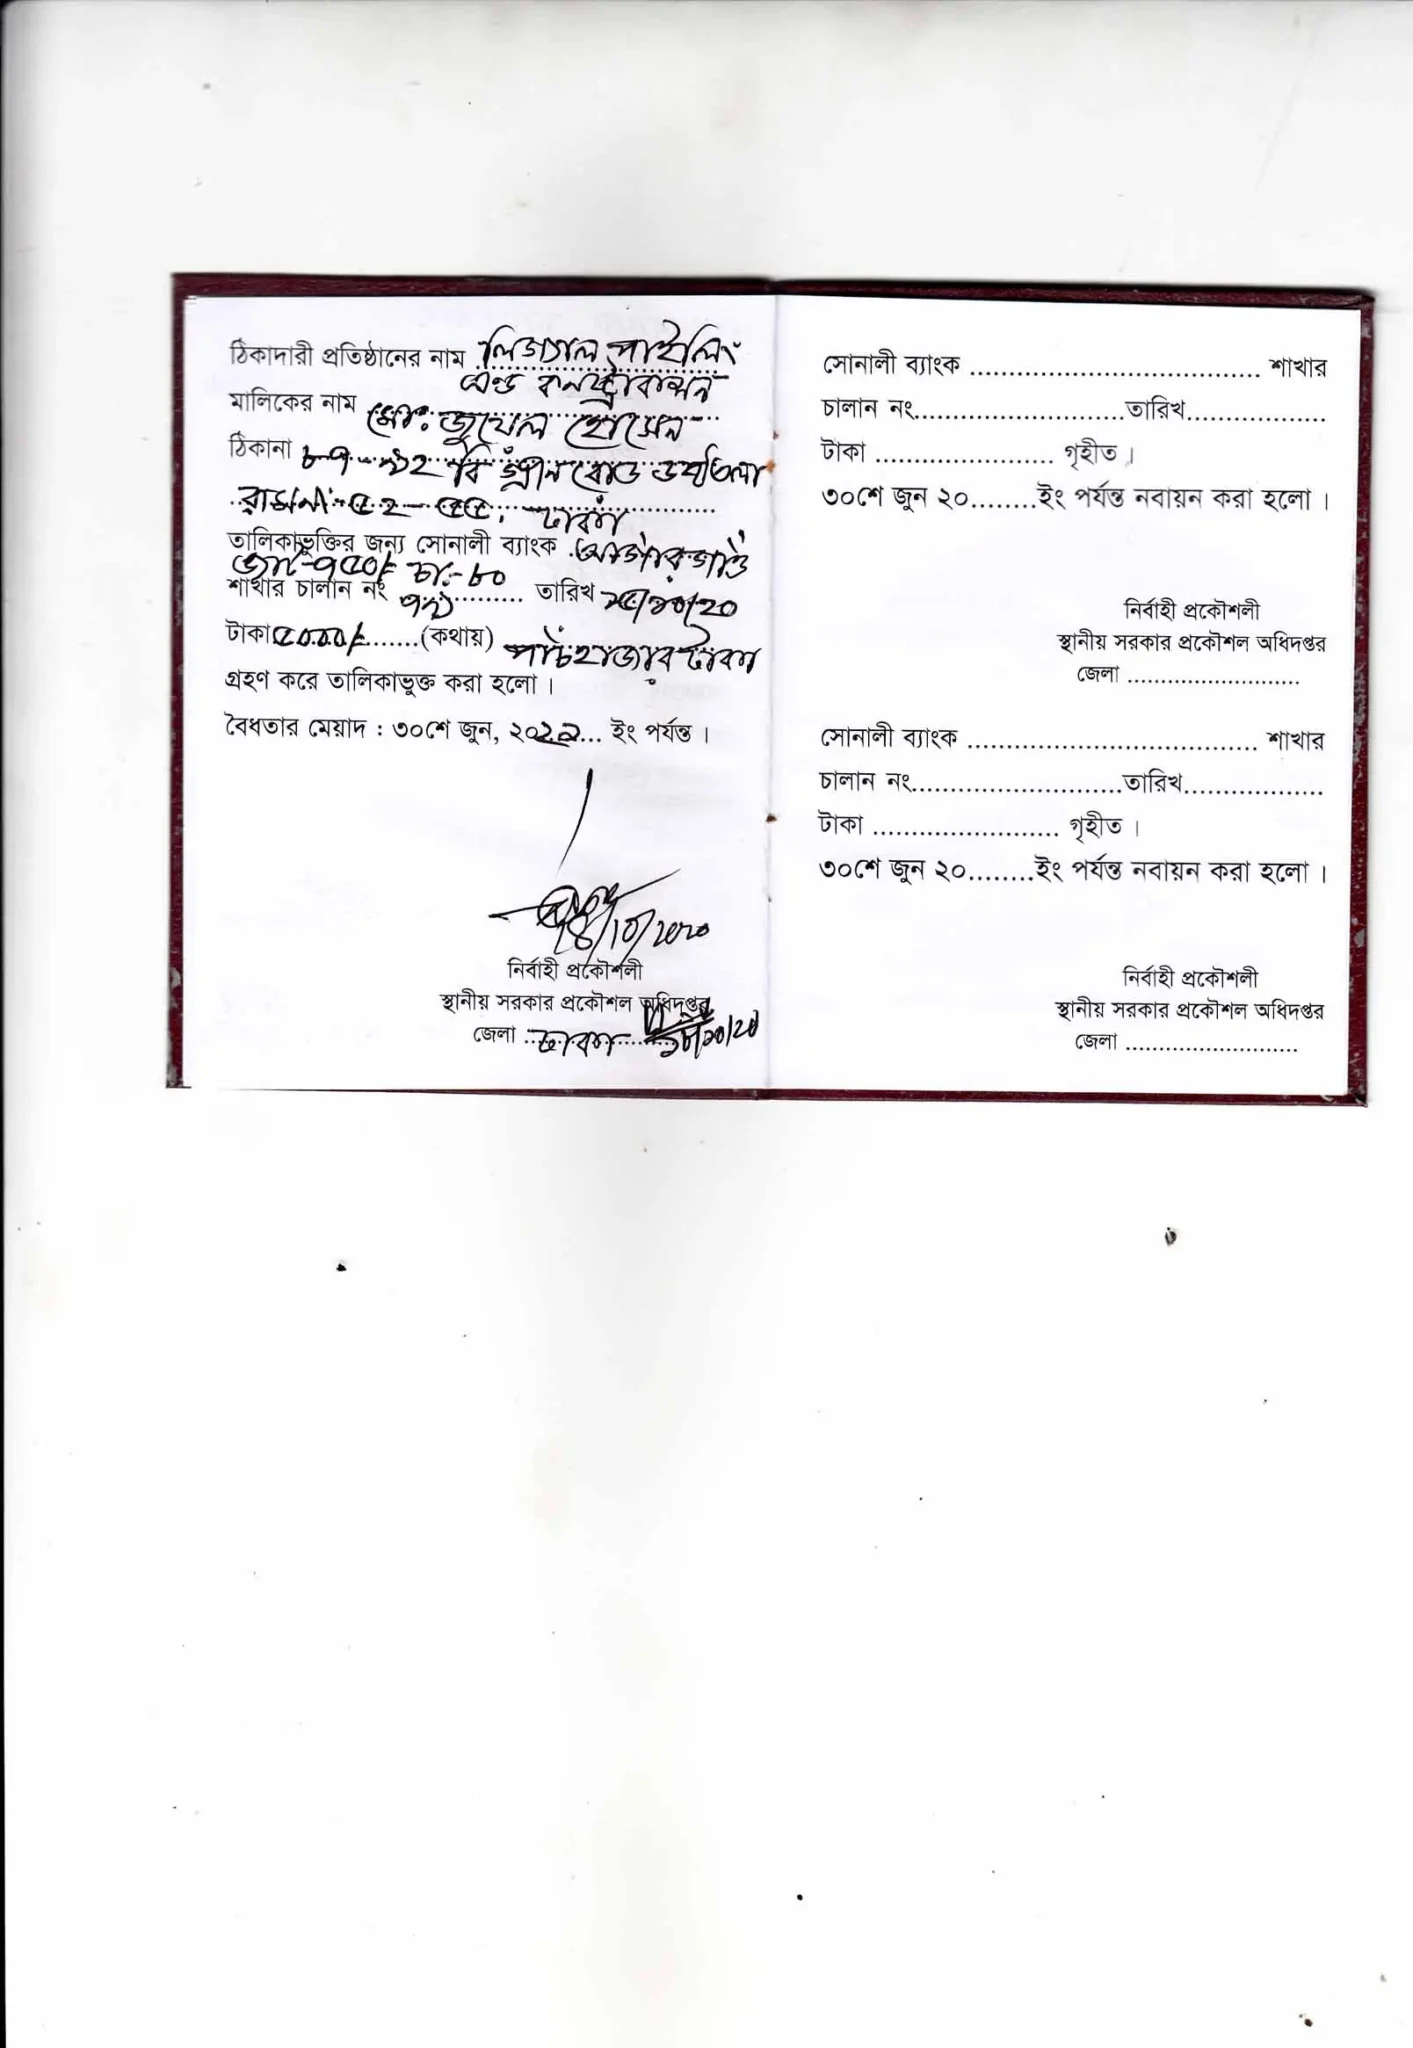 ঠিকাদারী প্রতিষ্ঠানের নাম লিজেন্ডাল পাইলিং
এন্ড কনস্ট্রাকশন
মালিকের নাম মোঃ জুয়েল হোসেন
ঠিকানা ৮৭ বি গ্রীন রোড
৫২ ৫৫, ঢাকা
তালিকাভুক্তির জন্য সোনালী ব্যাংক আগারগাঁও
ভ্যাট-৭৫০/- চা:-৮০
শাখার চালান নং ৭৯ তারিখ ১৫/১০/২০
টাকা ৫০০০/- (কথায়) পাঁচ হাজার টাকা
গ্রহণ করে তালিকাভুক্ত করা হলো ।
বৈধতার মেয়াদ : ৩০শে জুন, ২০২১... ইং পর্যন্ত ।
18/10/2020
নির্বাহী প্রকৌশলী
স্থানীয় সরকার প্রকৌশল অধিদপ্তর
জেলা ..ঢাকা ১৮/১০/২০
সোনালী ব্যাংক ..................................... শাখার
চালান নং...........................তারিখ..................
টাকা ....................... গৃহীত ।
৩০শে জুন ২০........ইং পর্যন্ত নবায়ন করা হলো ।
নির্বাহী প্রকৌশলী
স্থানীয় সরকার প্রকৌশল অধিদপ্তর
জেলা ..........................
সোনালী ব্যাংক ..................................... শাখার
চালান নং...........................তারিখ..................
টাকা ........................ গৃহীত ।
৩০শে জুন ২০........ইং পর্যন্ত নবায়ন করা হলো ।
নির্বাহী প্রকৌশলী
স্থানীয় সরকার প্রকৌশল অধিদপ্তর
জেলা ..........................